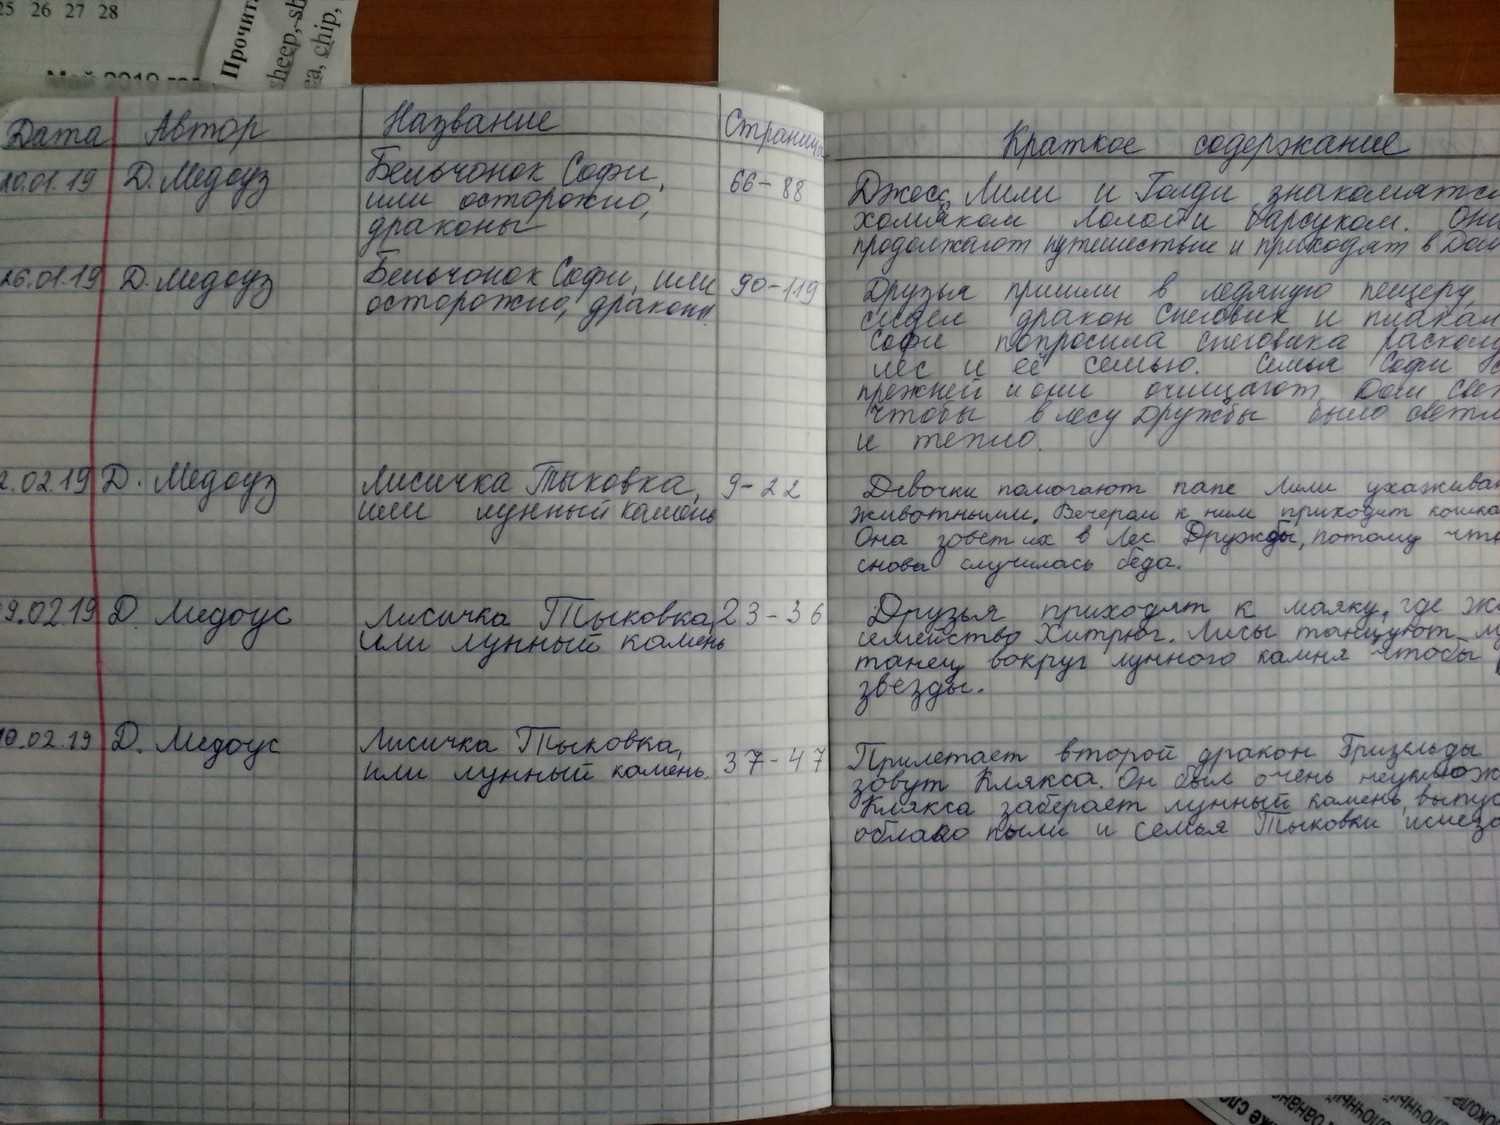 25 26 27 28
Май 2019 год
Прочит
sheep, sh
ea, chip,
Дата Автор Название Страницы Краткое содержание
20.01.19 Д. Медоуз Бельчонок Софи, 66-88 Джесс, Лили и Голди знакомятся
или осторожно, хомяком Лолой и барсуком. Они
драконы продолжают путешествие и приходят в Дом
26.01.19 Д. Медоуз Бельчонок Софи, или 90-119 Друзья пришли в ледяную пещеру,
осторожно, драконы! сидел дракон Снеговик и плакал
Софи попросила снеговика
лес и её семью. Семья Софи
прежней и они очищают Дом
чтобы в лесу Дружбы было светло
и тепло.
2.02.19 Д. Медоуз Лисичка Тыковка, 9-22 Девочки помогают папе Лили ухаживать
или лунный камень животными. Вечером к ним приходит кошка
Она зовет их в Лес Дружбы, потому что
снова случилась беда.
9.02.19 Д. Медоус Лисичка Тыковка, 23-36 Друзья приходят к маяку, где
или лунный камень семейство Хитрюг. Лисы танцуют
танец вокруг лунного камня чтобы
звезды.
10.02.19 Д. Медоус Лисичка Тыковка, 37-47 Прилетает второй дракон Гризельды
или лунный камень. зовут Клякса. Он был очень
Клякса заберает лунный камень,
облако пыли и семья Тыковки